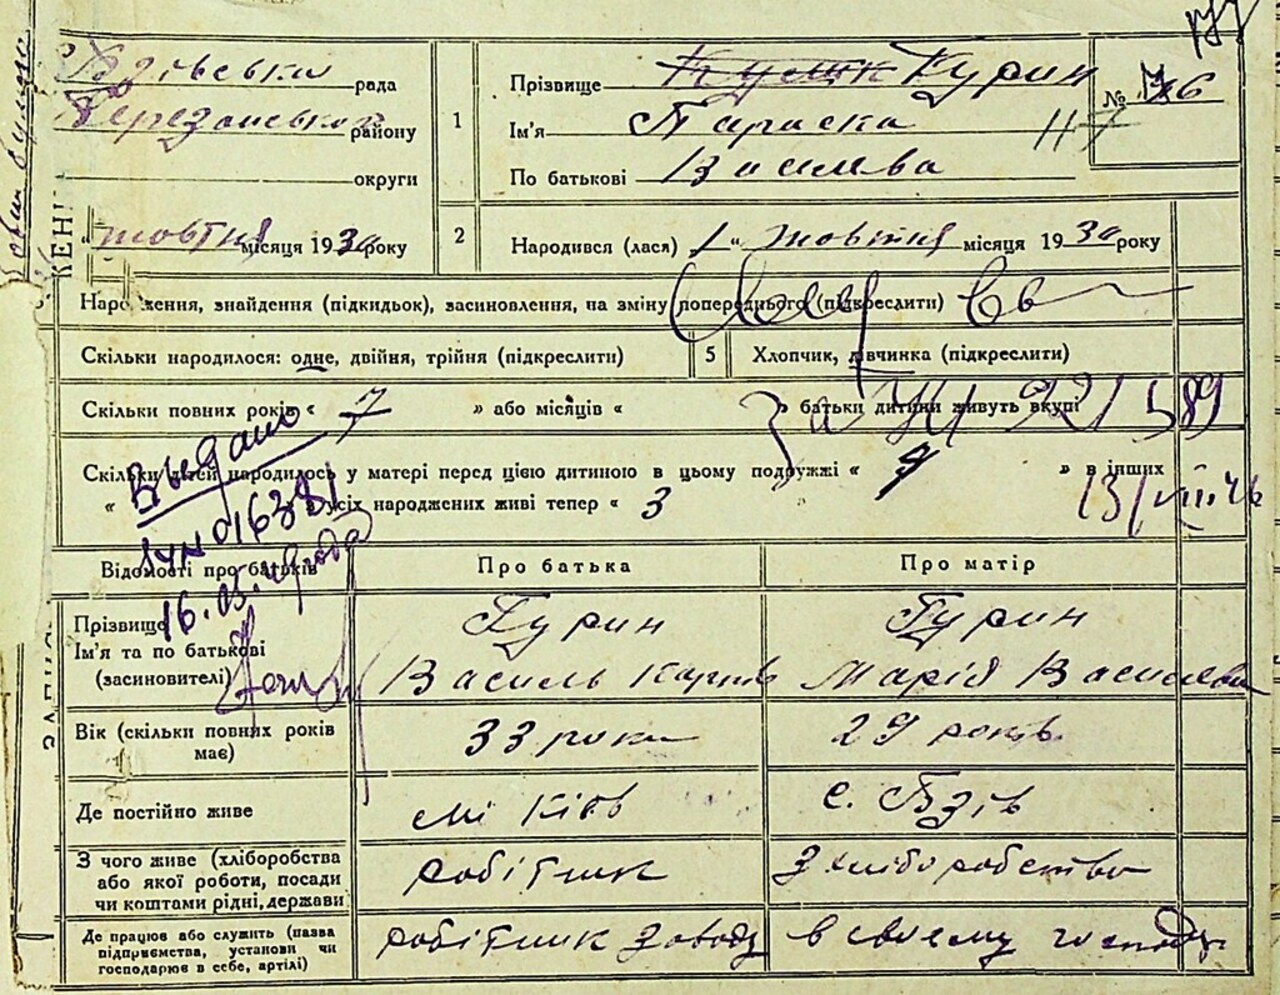 Бзівська рада
Березанського району
округи
жовтня місяця 1930 року
1
Прізвище Кулік Курин
Ім'я Параска
По батькові Василева
№ 76
117
177
2
Народився (лася) „1“ жовтня місяця 1930 року
Народження, знайдення (підкидьок), засиновлення, на зміну попереднього (підкреслити)
Скільки народилося: одне, двійня, трійня (підкреслити)
5 Хлопчик, дівчинка (підкреслити)
Скільки повних років « 7 » або місяців « » батьки дитини живуть вкупі
Видано
Скільки дітей народилось у матері перед цією дитиною в цьому подружжі « » в інших
« з усіх народжених живі тепер « 3 »
13/VIII 46
016381
16.05.
Відомості про батьків
Про батька
Про матір
Прізвище
Ім'я та по батькові
(засиновителі)
Курин
Василь Карпів
Курин
Марія Василева
Вік (скільки повних років має)
33 роки
29 років
Де постійно живе
мі Київ
с. Бзів
З чого живе (хліборобства
або якої роботи, посади
чи коштами рідні, держави
робітник
З хліборобства
Де працює або служить (назва
підприємства, установи чи
господарює в себе, артілі)
робітник заводу
в своєму господ.